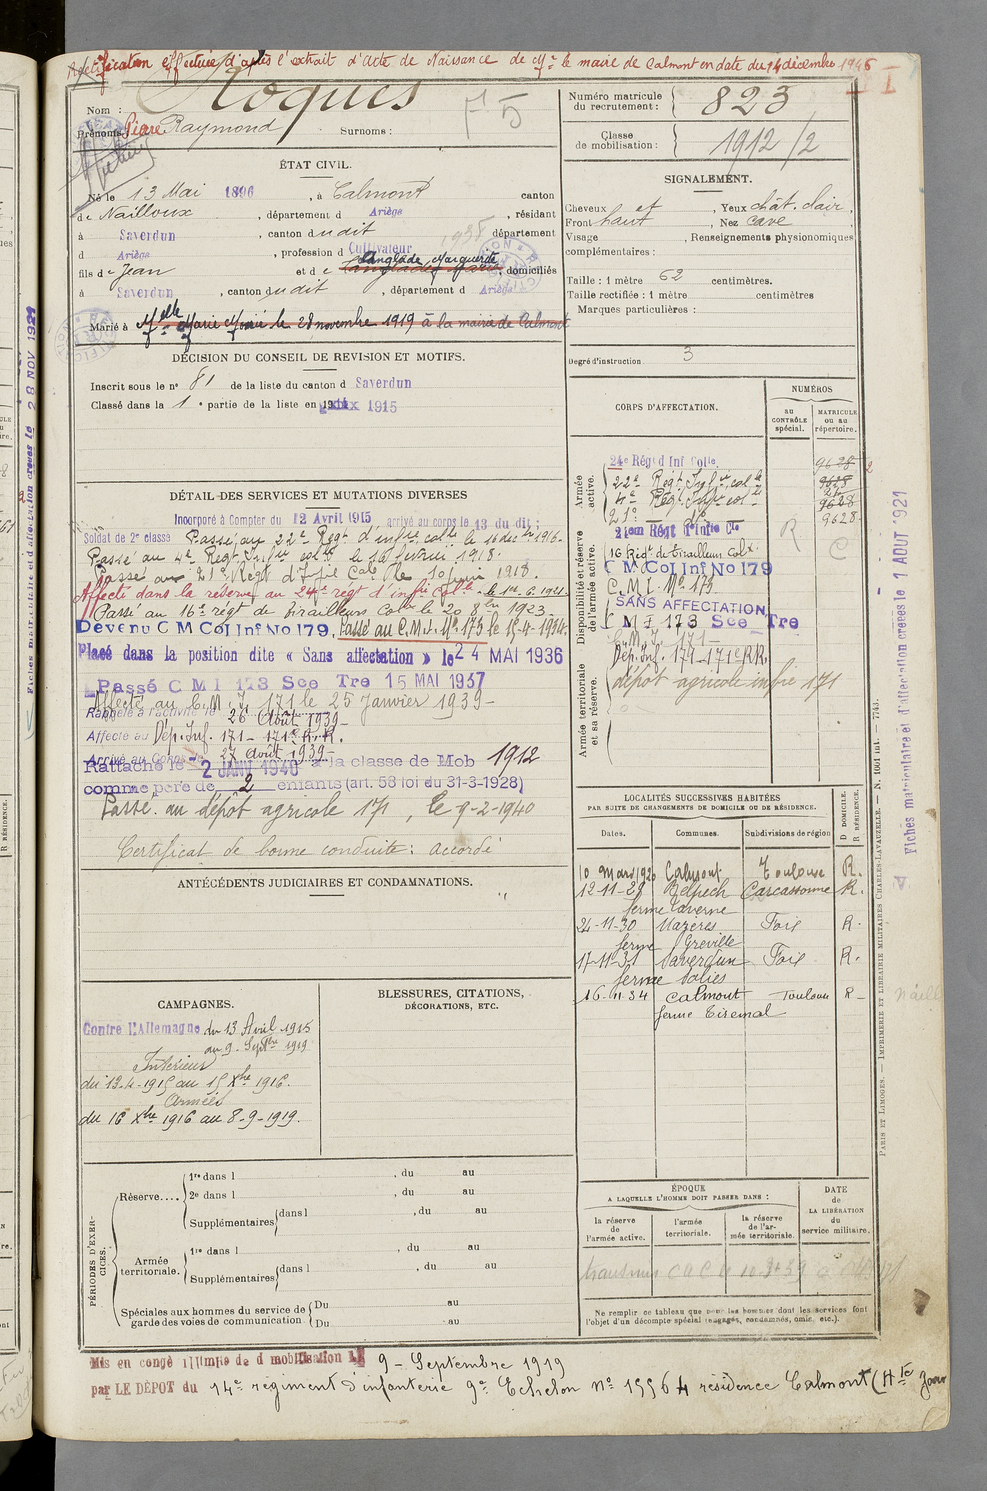 Rectification effectuée d'après l'extrait d'Acte de Naissance de Mr le maire de Calmont en date du 14 décembre 1946
Nom : Roques
F 5
Prénoms : Pierre Raymond Surnoms :
Numéro matricule du recrutement : 823
Classe de mobilisation : 1912/2
ÉTAT CIVIL.
Né le 13 Mai 1896, à Calmont canton
de Nailloux, département d Ariège, résidant
à Saverdun, canton dudit département
d Ariège, profession d Cultivateur
fils de Jean et de Langlade Marguerite, domiciliés
à Saverdun, canton dudit, département d Ariège
Marié à Melle Marie le 28 novembre 1919 à la mairie de Calmont
DÉCISION DU CONSEIL DE REVISION ET MOTIFS.
Inscrit sous le no 81 de la liste du canton d Saverdun
Classé dans la 1e partie de la liste en 1915
DÉTAIL DES SERVICES ET MUTATIONS DIVERSES
Incorporé à Compter du 12 Avril 1915 arrivé au corps le 13 du dit ;
Soldat de 2e classe Passé au 22e Régt d'infrie colle le 16 décbre 1916.
Passé au 4e Régt Infrie colle le 16 février 1918.
Passé au 21e Régt d'Infie Cale le 10 juin 1918.
Affecté dans la réserve au 24e régt d'infie Colle le 1er.6.1921.
Passé au 16e régt de tirailleurs Colx le 20 8bre 1923
Devenu C M Col Inf No 179. Passé au C.M.I. No 173 le 15-4-1934.
Placé dans la position dite « Sans affectation » le 24 MAI 1936
Passé C M I 173 Sce Tre 15 MAI 1937
Affecté au C.M.I. 171 le 25 Janvier 1939
Rappelé à l'activité le 26 Août 1939
Affecté au Dép. Inf. 171 - 171e R.R.
Arrivé au Corps le 27 Août 1939
Rattaché le 2 JANV 1940 à la classe de Mob 1912
comme père de 2 enfants (art. 58 loi du 31-3-1928)
Passé au dépôt agricole 171, le 9-2-1940
Certificat de bonne conduite : accordé
ANTÉCÉDENTS JUDICIAIRES ET CONDAMNATIONS.
CAMPAGNES.
Contre l'Allemagne du 13 Avril 1915
au 9 Septbre 1919
Intérieur
du 13-4-1915 au 15 Xbre 1916.
Armées
du 16 Xbre 1916 au 8-9-1919.
BLESSURES, CITATIONS,
DÉCORATIONS, ETC.
PÉRIODES D'EXERCICES.
Réserve....
1re dans l , du au
2e dans l , du au
Supplémentaires dans l , du au
Armée territoriale.
1re dans l , du au
Supplémentaires dans l , du au
Spéciales aux hommes du service de garde des voies de communication
Du au
Du au
SIGNALEMENT.
Cheveux et , Yeux chât. clair,
Front haut , Nez cave
Visage , Renseignements physionomiques
complémentaires :
Taille : 1 mètre 62 centimètres.
Taille rectifiée : 1 mètre centimètres
Marques particulières :
Degré d'instruction 3
CORPS D'AFFECTATION.
NUMÉROS
au CONTRÔLE spécial.
MATRICULE ou au répertoire.
Armée active.
24e Régt d Inf Colle. 9628
22e Régt Infrie colle 9628
4e Régt Infrie colle 9628
21e do 9628
Disponibilité et réserve de l'armée active.
21ème Régt d'Infie Cle
16 Régt de tirailleurs Colx
C M Col Inf No 179
C.M.I. No 173
SANS AFFECTATION
C M I 173 Sce Tre
R
C
Armée territoriale et sa réserve.
C.M.I. 171
Dép. Inf. 171-171e RR.
dépôt agricole infie 171
LOCALITÉS SUCCESSIVES HABITÉES
PAR SUITE DE CHANGEMENTS DE DOMICILE OU DE RÉSIDENCE.
Dates. Communes. Subdivisions de région D DOMICILE. R RÉSIDENCE.
10 Mars 1920 Calmont Toulouse R.
12-11-28 Belpech Carcassonne R.
ferme Caverne
24-11-30 Mazères Foix R.
ferme Greville
17-11-31 Saverdun Foix R.
ferme Salies
16-11-34 Calmont Toulouse R
ferme Cizemal
ÉPOQUE
A LAQUELLE L'HOMME DOIT PASSER DANS :
la réserve de l'armée active.
l'armée territoriale.
la réserve de l'armée territoriale.
DATE de LA LIBÉRATION du service militaire.
Ne remplir ce tableau que pour les hommes dont les services font
l'objet d'un décompte spécial (engagés, condamnés, omis, etc.).
Mis en congé illimité de démobilisation le 9 Septembre 1919
par LE DÉPOT du 14e régiment d'infanterie 9e Echelon No 15564 résidence Calmont (Hte Garo
PARIS ET LIMOGES. — IMPRIMERIE ET LIBRAIRIE MILITAIRES CHARLES-LAVAUZELLE. — N. 1061 int. — 7743.
Fiches matriculaire et d'affectation créées le 1 AOUT 1921
Fiches matriculaire et d'affectation créées le 28 NOV 1921